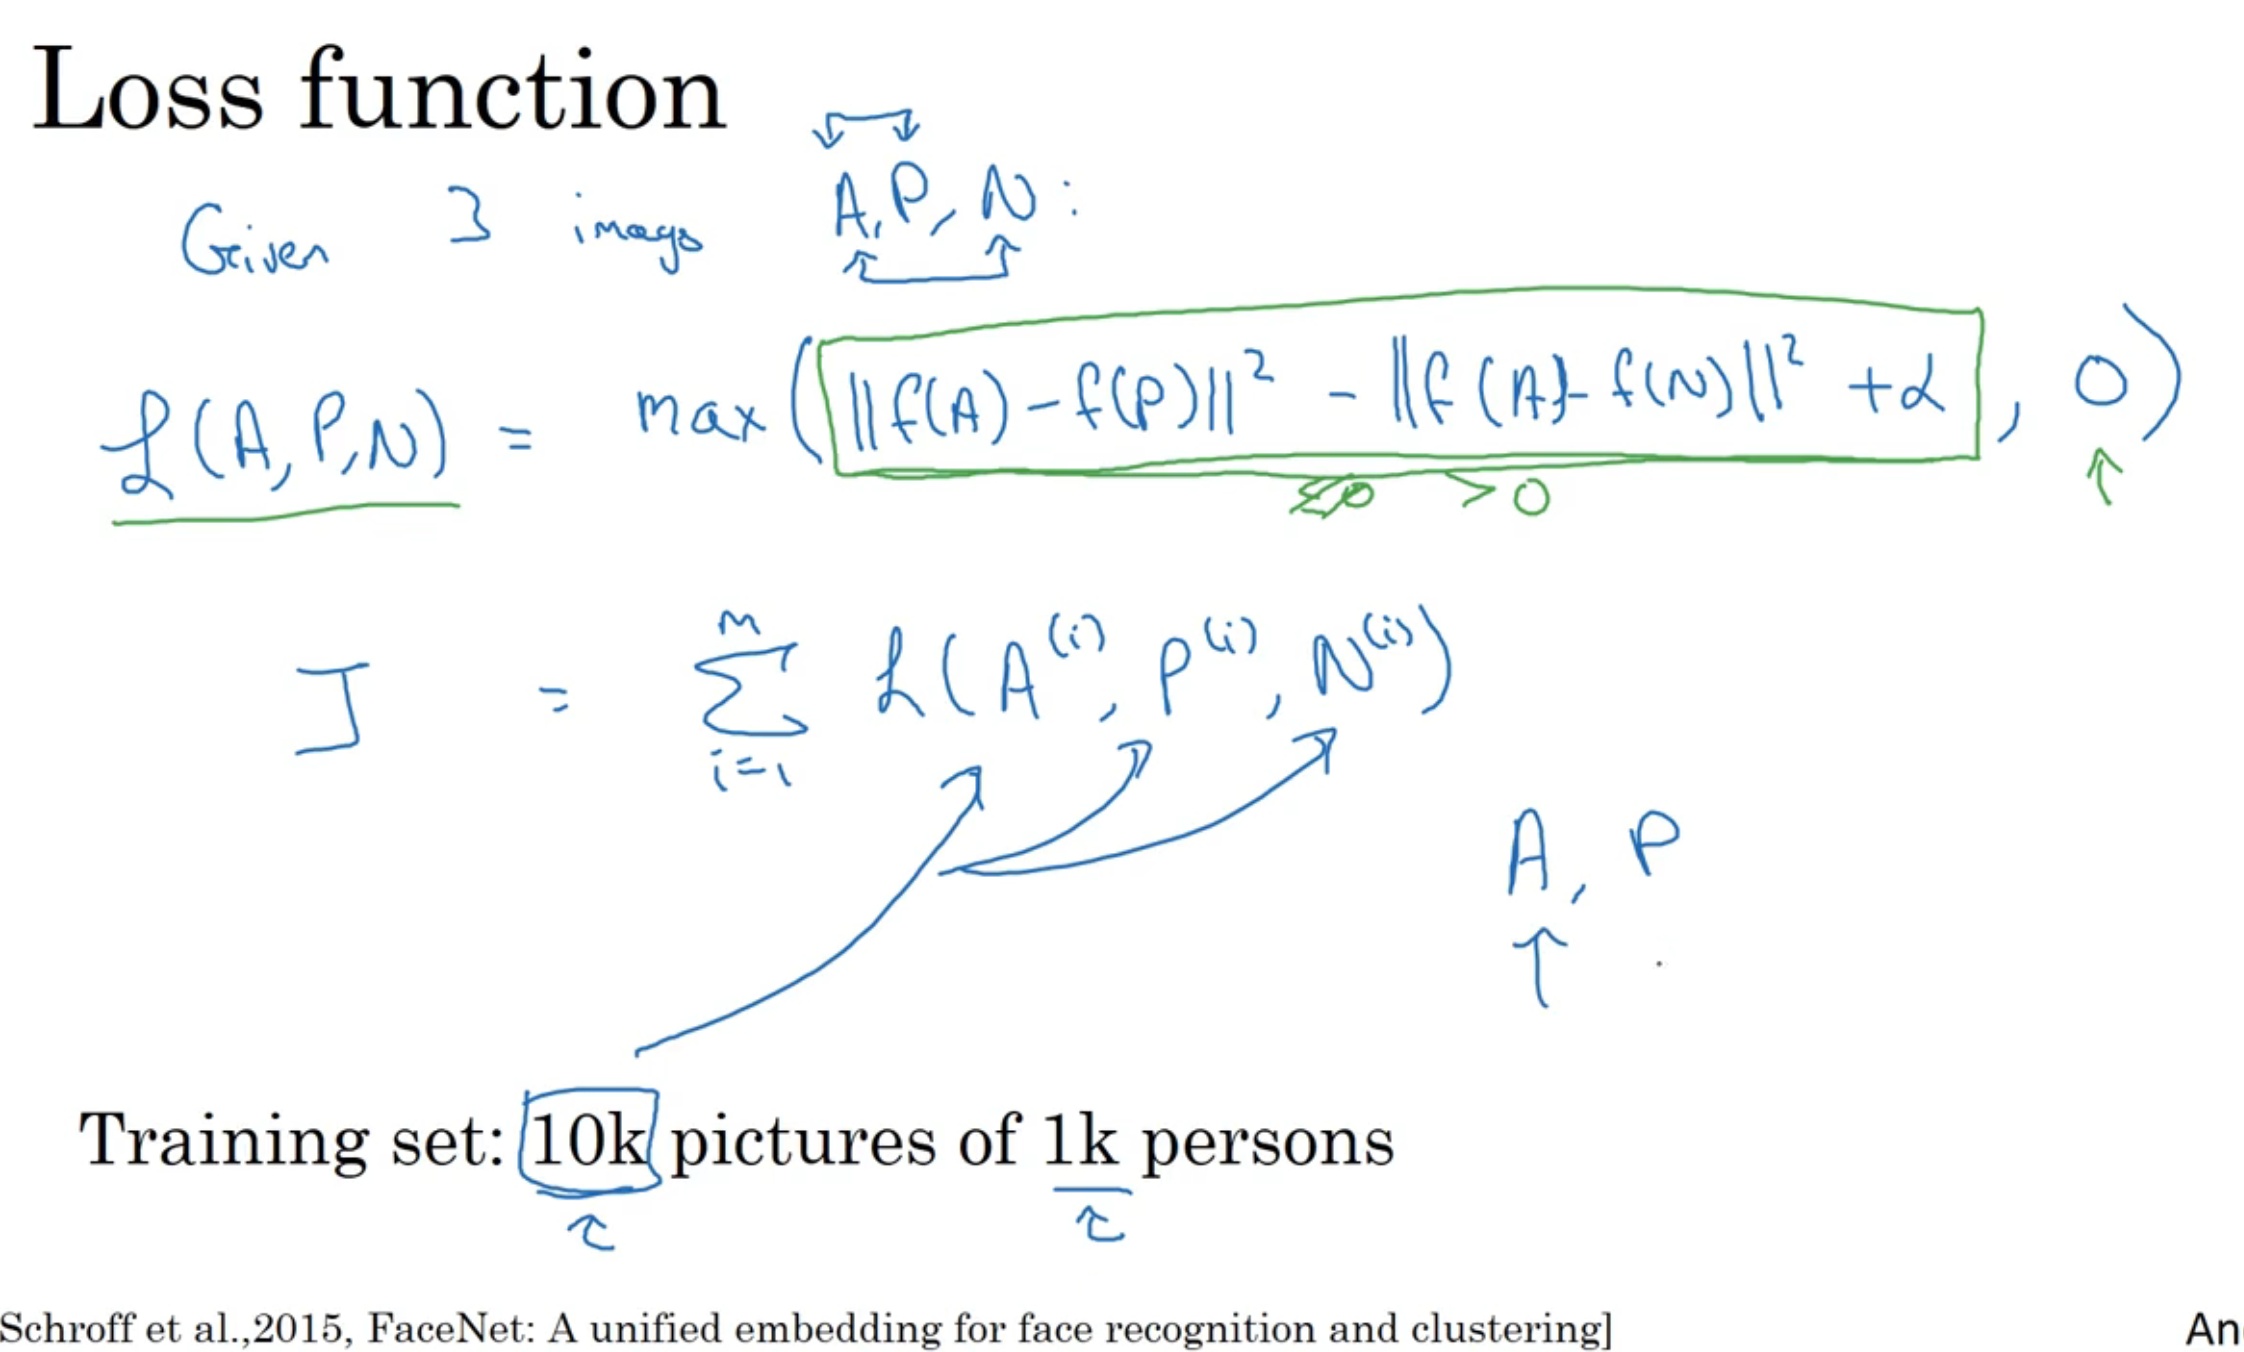 Loss function
Given 3 images A, P, N:
L(A, P, N) = max(||f(A) - f(P)||² - ||f(A) - f(N)||² + α, 0)
≤0 >0
M
J = Σ L(A⁽ⁱ⁾, P⁽ⁱ⁾, N⁽ⁱ⁾)
i=1
A, P
Training set: 10k pictures of 1k persons
Schroff et al.,2015, FaceNet: A unified embedding for face recognition and clustering]